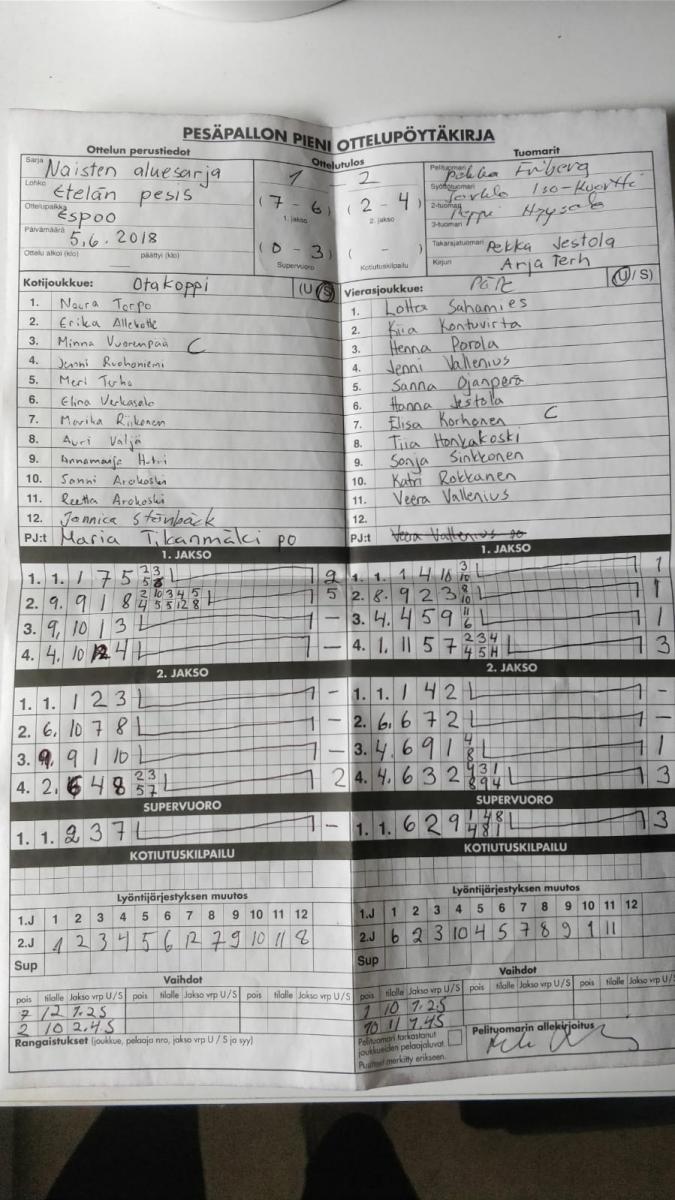 PESÄPALLON PIENI OTTELUPÖYTÄKIRJA
Ottelun perustiedot
Ottelutulos
Tuomarit
Sarja Naisten aluesarja
Lohko Etelän pesis
Ottelupaikka Espoo
Päivämäärä 5.6.2018
Ottelu alkoi (klo) päättyi (klo)
1 - 2
(7 - 6) (2 - 4)
1. jakso 2. jakso
(0 - 3) ( - )
Supervuoro Kotiutuskilpailu
Pelituomari Pekka Friberg
Syöttötuomari Iso-Kuortti
2-tuomari
3-tuomari
Takarajatuomari Pekka Jestola
Kirjuri Arja Terh
Kotijoukkue: Otakoppi (U/S)
1. Noora Torpo
2. Erika
3. Minna Vuorenpää C
4. Jenni Ruohoniemi
5. Meri
6. Elina Verkasalo
7. Marika Riikonen
8. Auri Valjä
9.
10. Sanni Arokoski
11. Reetta Arokoski
12. Jannica Stenbäck
PJ:t Maria Tikanmäki po
Vierasjoukkue: (U/S)
1. Lotta Sahamies
2. Kiia Kontuvirta
3. Henna Porola
4. Jenni Vallenius
5. Sanna Ojanperä
6. Hanna Jestola
7. Elisa Korhonen C
8. Tiia Honkakoski
9. Sonja Sinkkonen
10. Katri Rokkanen
11. Veera Vallenius
12.
PJ:t Veera Vallenius
1. JAKSO
1. 1. 1 7 5 2
2. 9. 9 1 8 5
3. 9. 10 1 3 -
4. 4. 10 12 4 -
1. JAKSO
1. 1. 1 4 10 1
2. 8. 9 2 3 1
3. 4. 4 5 9 1
4. 1. 11 5 7 3
2. JAKSO
1. 1. 1 2 3 -
2. 6. 10 7 8 -
3. 9. 9 1 10 -
4. 2. 6 4 8 2
2. JAKSO
1. 1. 1 4 2 -
2. 6. 6 7 2 -
3. 4. 6 9 1 1
4. 4. 6 3 2 3
SUPERVUORO
1. 1. 2 3 7 -
SUPERVUORO
1. 1. 6 2 9 3
KOTIUTUSKILPAILU
KOTIUTUSKILPAILU
Lyöntijärjestyksen muutos
1.J 1 2 3 4 5 6 7 8 9 10 11 12
2.J 1 2 3 4 5 6 12 7 9 10 11 8
Sup
Lyöntijärjestyksen muutos
1.J 1 2 3 4 5 6 7 8 9 10 11 12
2.J 6 2 3 10 4 5 7 8 9 1 11
Sup
Vaihdot
pois tilalle Jakso vrp U/S pois tilalle Jakso vrp U/S pois tilalle Jakso vrp U/S
7 12 1.2S
2 10 2.4S
Rangaistukset (joukkue, pelaaja nro, jakso vrp U/S ja syy)
Vaihdot
pois tilalle Jakso vrp U/S pois tilalle Jakso vrp U/S pois tilalle Jakso vrp U/S
1 10 1.2S
10 11 1.4S
Pelituomari tarkastanut joukkueiden pelaajaluvat.
Puutteet merkitty erikseen.
Pelituomarin allekirjoitus